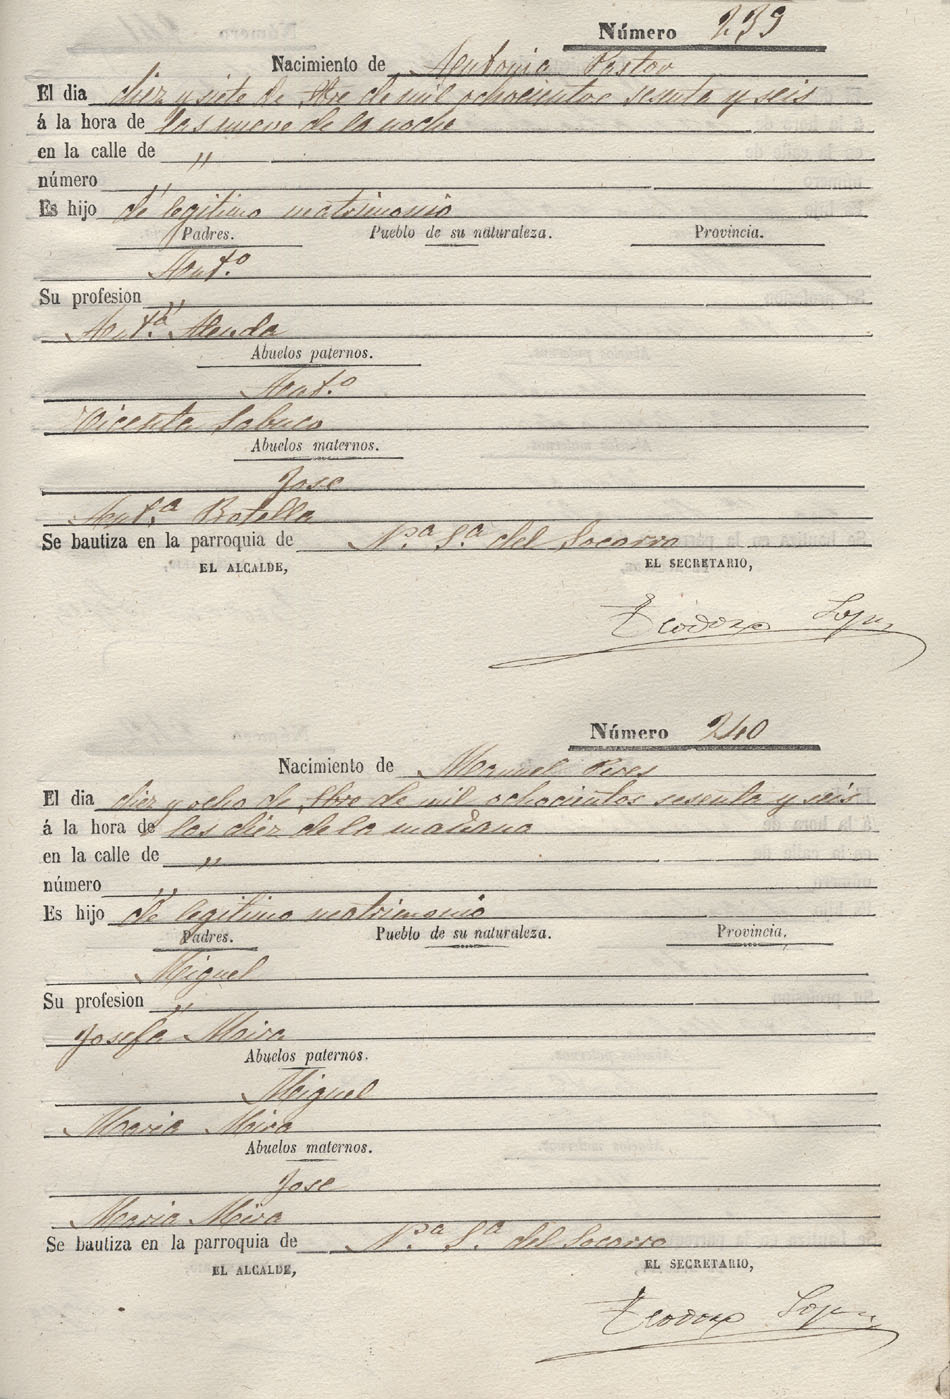 Número 239
Nacimiento de Antonia Pastor
El dia diez y siete de 8bre de mil ochocientos sesenta y seis
á la hora de las nueve de la noche
en la calle de "
número "
Es hijo de legitimo matrimonio
Padres. Pueblo de su naturaleza. Provincia.
Ant.º
Su profesion "
Ant.ª Alenda
Abuelos paternos.
Ant.º
Vicenta Sabuco
Abuelos maternos.
Jose
Ant.ª Botella
Se bautiza en la parroquia de N.ª S.ª del Socorro
EL ALCALDE, EL SECRETARIO,
Teodoro Lopez
Número 240
Nacimiento de Manuel Peres
El dia diez y ocho de 8bre de mil ochocientos sesenta y seis
á la hora de las diez de la mañana
en la calle de "
número "
Es hijo de legitimo matrimonio
Padres. Pueblo de su naturaleza. Provincia.
Miguel
Su profesion "
Josefa Mira
Abuelos paternos.
Miguel
Maria Mira
Abuelos maternos.
Jose
Maria Mira
Se bautiza en la parroquia de N.ª S.ª del Socorro
EL ALCALDE, EL SECRETARIO,
Teodoro Lopez